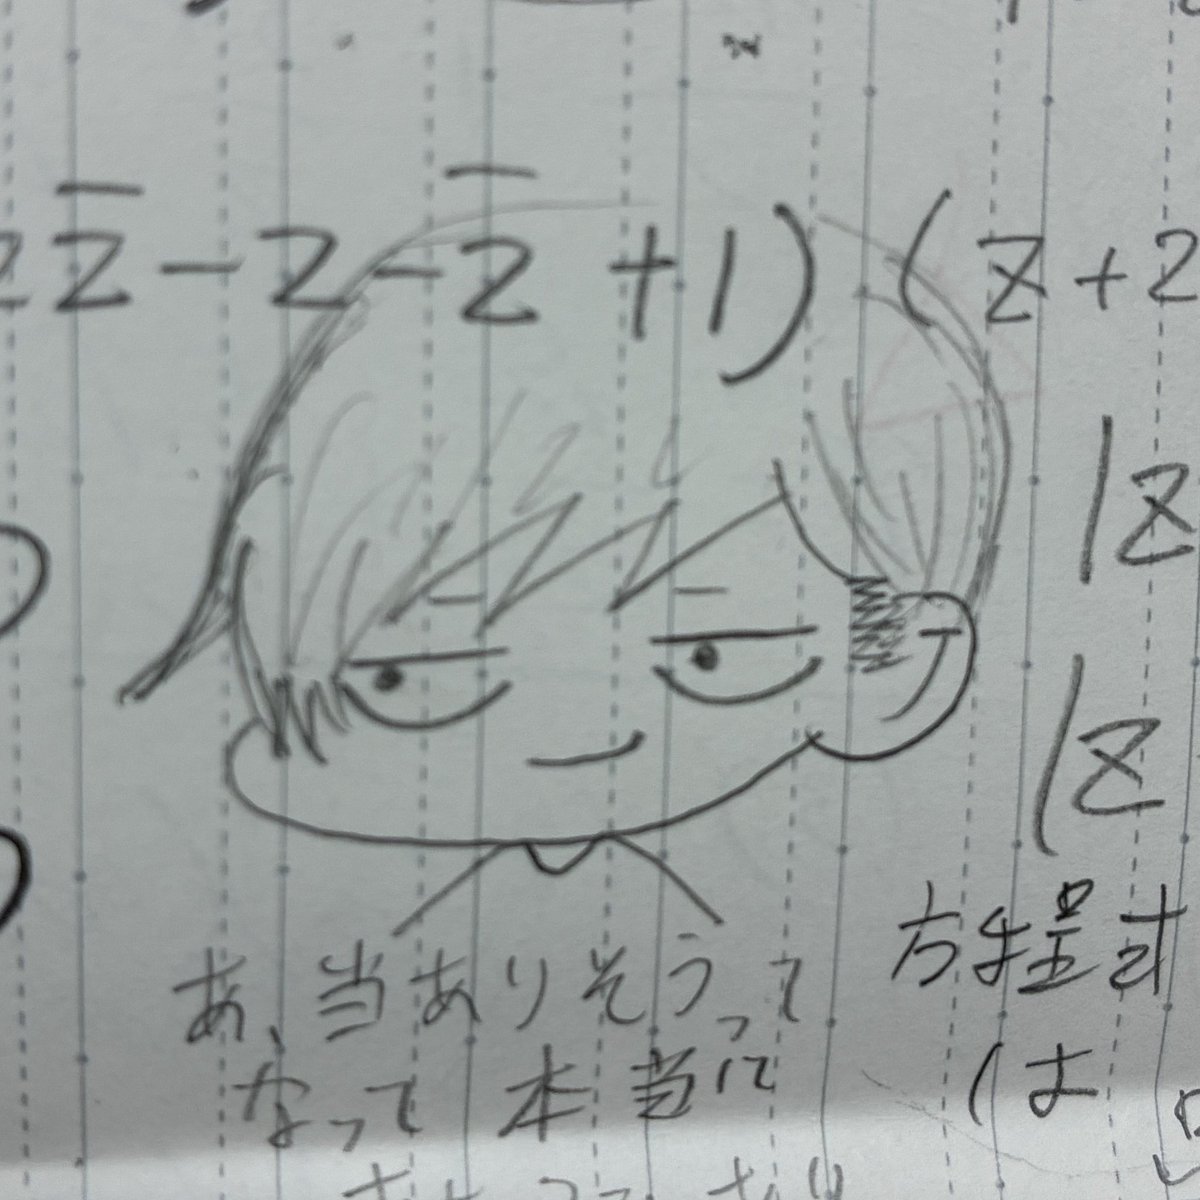 z̄ - z - z̄ + 1) (z + 2
|z
|z
方程式
は
あ、当ありそうって
なって 本当に